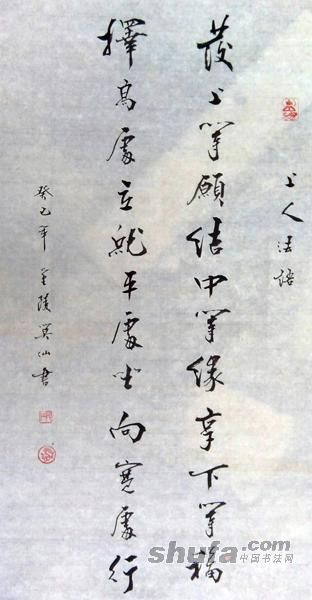 上人法语
发上等願结中等缘享下等福
擇高處立就平處坐向宽處行
癸巳年金陵冥仙書
shufa.com
中国书法网